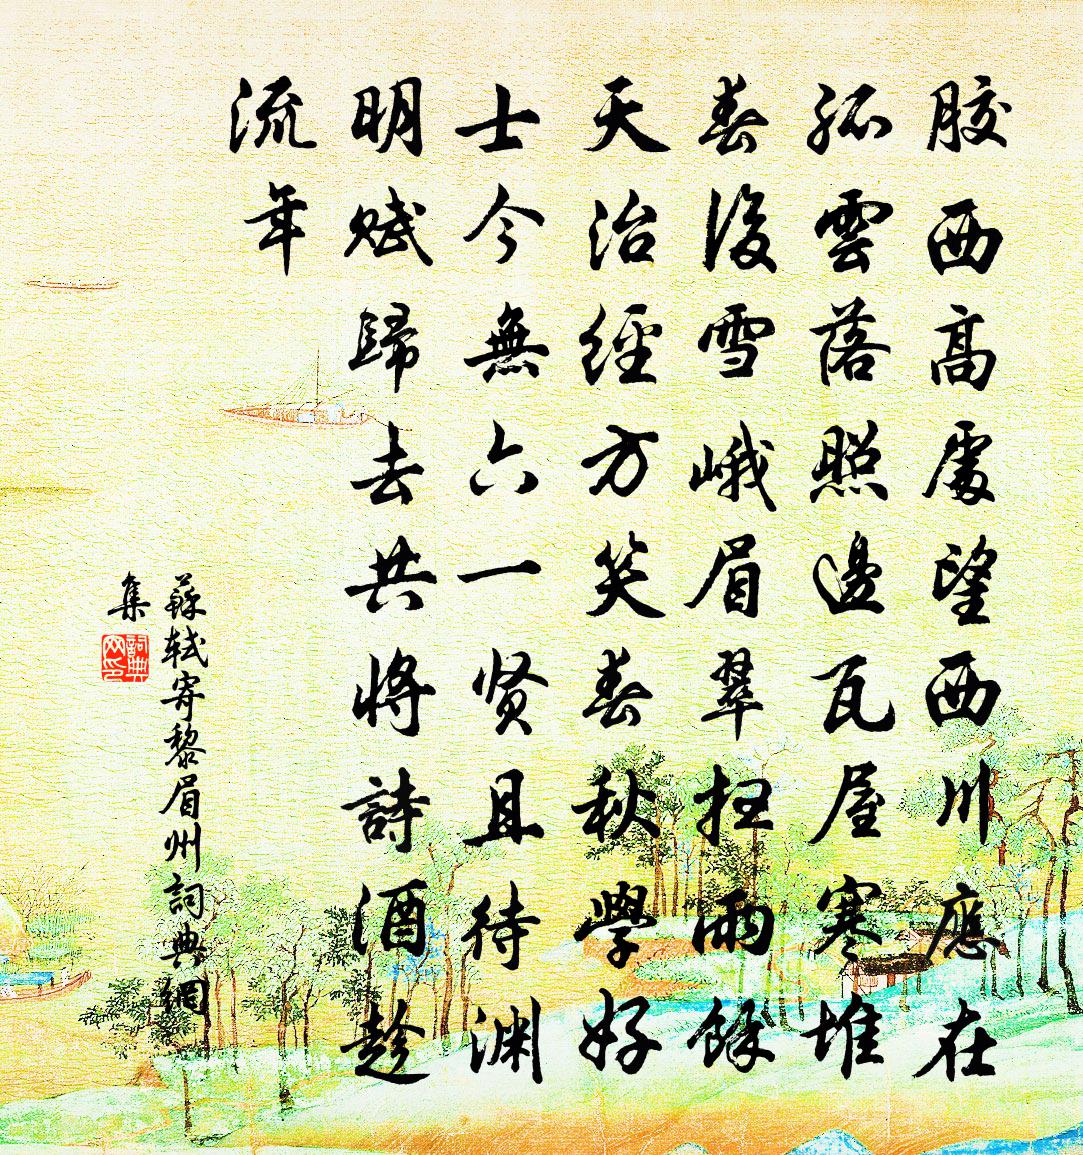 胶西高處望西川應在
孤雲落照邊瓦屋寒堆
春後雪峨眉翠扫雨餘
天治經方笑春秋學好
士今無六一贤且待渊
明赋歸去共將詩酒趁
流年
蘇轼寄黎眉州詞典網
集
詞典网印